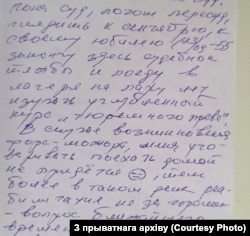 пока суд, потом пересуд,
глядишь к сентябрю, к
своему юбилею
закону здесь судебное
и поеду в
лагеря на пару лет
изучать углубленный
курс "тюремного
В случае возникновения
форс-мажора, меня уго-
варивать поехать домой
не придётся ☺, тем
более в таком деле реа-
билитация не за горами
- вопрос ближайшего
времени
З прыватнага архіву (Courtesy Photo)